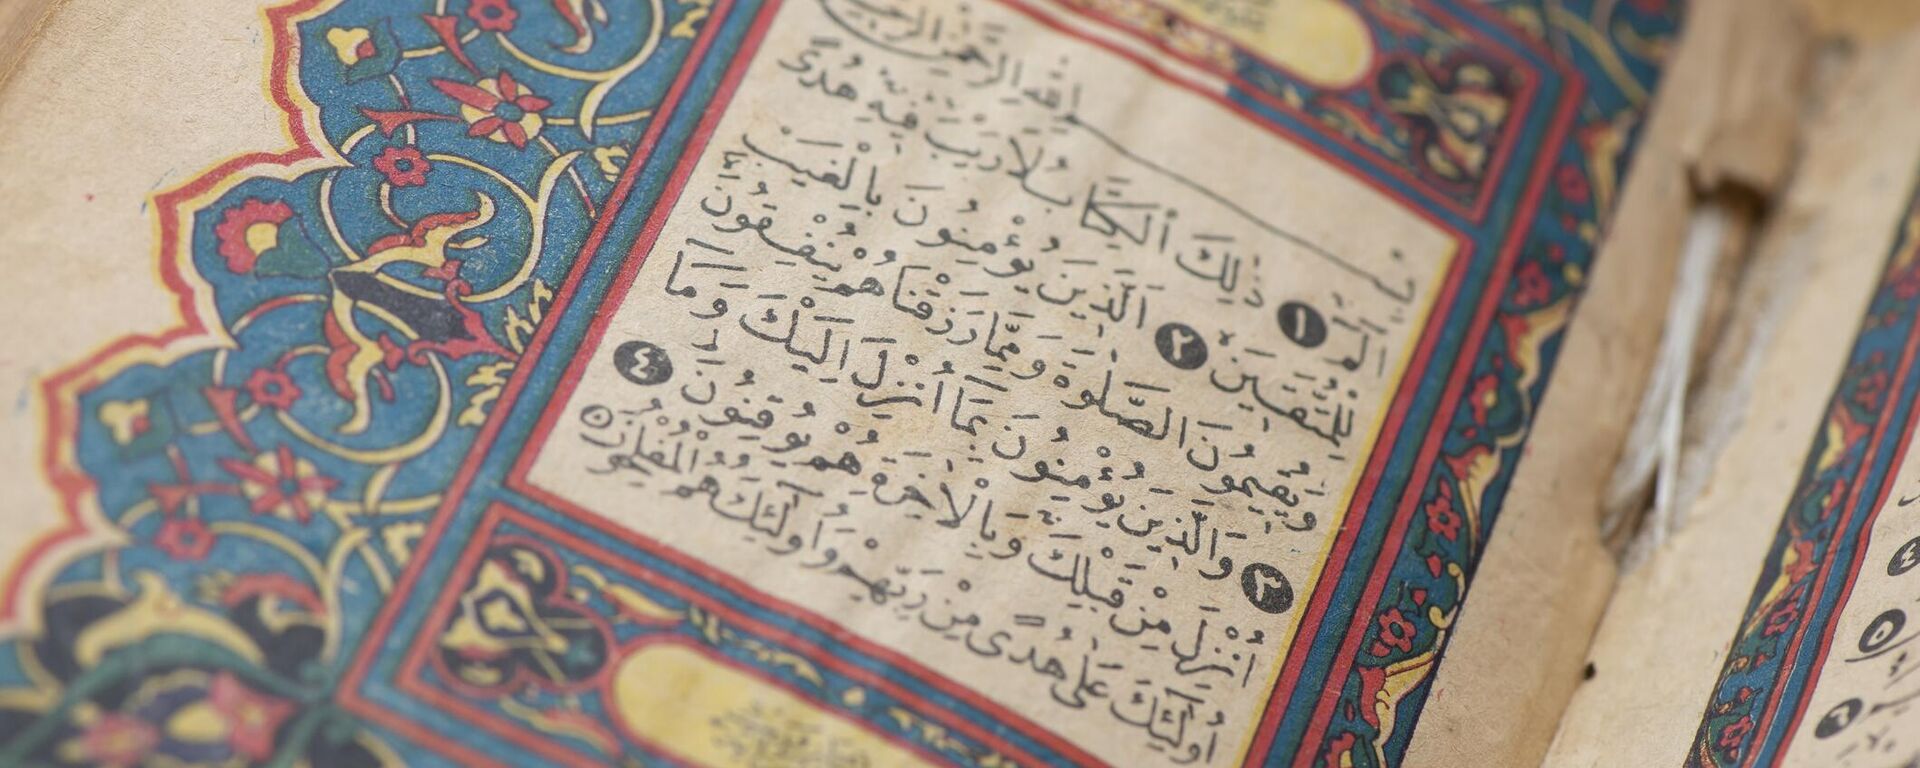 بِسْمِ اللهِ الرَّحْمٰنِ الرَّحِيمِ
الٓمٓ ١ ذٰلِكَ الْكِتَابُ لَا رَيْبَ فِيهِ هُدًى
لِلْمُتَّقِينَ ٢ اَلَّذِينَ يُؤْمِنُونَ بِالْغَيْبِ
وَيُقِيمُونَ الصَّلٰوةَ وَمِمَّا رَزَقْنَاهُمْ يُنْفِقُونَ
٣ وَالَّذِينَ يُؤْمِنُونَ بِمَا اُنْزِلَ اِلَيْكَ وَمَا
اُنْزِلَ مِنْ قَبْلِكَ وَبِالْاٰخِرَةِ هُمْ يُوقِنُونَ ٤
اُولٰئِكَ عَلٰى هُدًى مِنْ رَبِّهِمْ وَاُولٰئِكَ هُمُ الْمُفْلِحُونَ ٥
٤
٥
٦